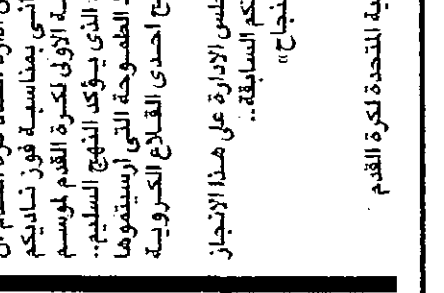 ـى بمناسبة فوز ناديكم
ـة الاولى لكرة القدم لموسم
الذى يؤكد النهج السليم..
الطموحة التى ارسيتموها
ـح احدى القلاع الكروية
ـلس الادارة على هذا الانجاز
ـكم السابقة..
ـنجاح»
ـية المتحدة لكرة القدم